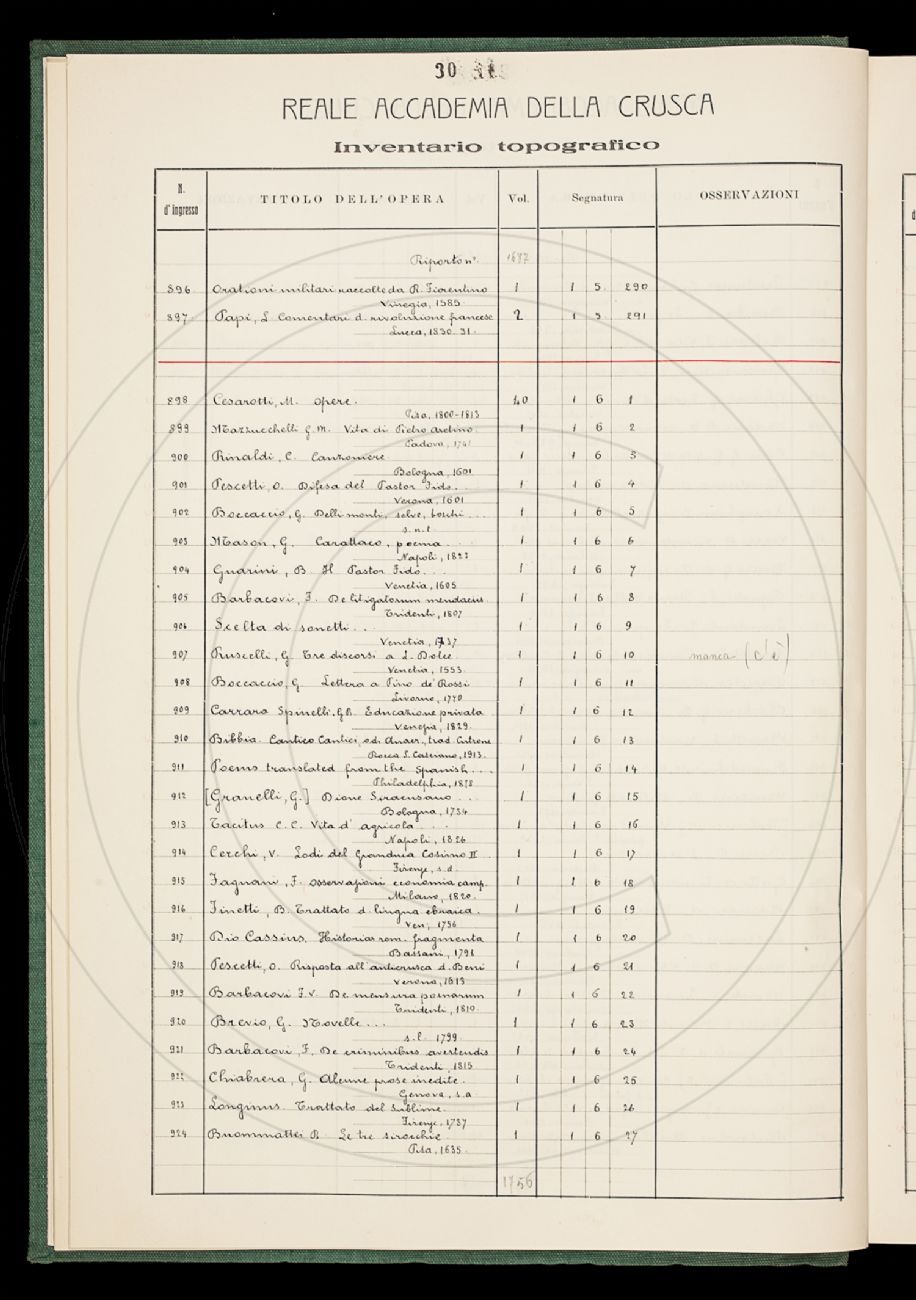 30
REALE ACCADEMIA DELLA CRUSCA
Inventario topografico
N. d'ingresso TITOLO DELL'OPERA Vol. Segnatura OSSERVAZIONI
Riporto n°. 1687
896 Orationi militari raccolte da R. Fiorentino 1 1 5 290
Vinegia, 1585.
897 Papi, L Comentari d. rivoluzione francese 2 1 5 291
Lucca, 1830-31.
898 Cesarotti, M. Opere. 40 1 6 1
Pisa, 1800-1813
899 Mazzucchelli G. M. Vita di Pietro Aretino. 1 1 6 2
Padova, 1741
900 Rinaldi, C. Canzoniere. 1 1 6 3
Bologna, 1601
901 Pescetti, O. Difesa del Pastor Fido. . 1 1 6 4
Verona, 1601
902 Boccaccio, G. Delli monti, selve, boschi ... 1 1 6 5
s. n. t
903 Mason, G. Carattaco, poema. . . 1 1 6 6
Napoli, 1823
904 Guarini, B. Il Pastor Fido. . . 1 1 6 7
Venetia, 1605
905 Barbacovi, F. De litigatorum mendaciis. 1 1 6 8
Tridenti, 1807
906 Scelta di sonetti. . . 1 1 6 9
Venetia, 1737
907 Ruscelli, G Tre discorsi a L. Dolce. 1 1 6 10 manca (c'è)
Venetia, 1553.
908 Boccaccio, G Lettera a Pino de' Rossi 1 1 6 11
Livorno, 1770
909 Carraro Spinelli. G.B. Educazione privata 1 1 6 12
Venezia, 1829.
910 Bibbia. Cantico Cantici, ed. trad. Cutrone 1 1 6 13
Rocca S. Casciano, 1913.
911 Poems translated from the Spanish. . . 1 1 6 14
Philadelphia, 1878
912 [Granelli, G.] Dione Siracusano . . . 1 1 6 15
Bologna, 1734
913 Tacitus C. C. Vita d' agricola . . . 1 1 6 16
Napoli, 1826
914 Cerchi, V. Lodi del Granduca Cosimo II 1 1 6 17
Firenze, s.d.
915 Fagnani, F. Osservazioni economia camp. 1 1 6 18
Milano, 1820.
916 Finetti, B. Trattato d. lingua ebraica. 1 1 6 19
Ven., 1756
917 Dio Cassius. Historiar. rom. fragmenta 1 1 6 20
Bassani, 1798
918 Pescetti, O. Risposta all'anticrusca d. Beni 1 1 6 21
Verona, 1613
919 Barbacovi F.V. De mensura poenarum 1 1 6 22
Tridenti, 1810.
920 Brevio, G. Novelle . . . 1 1 6 23
s. l. 1799.
921 Barbacovi, F. De criminibus avertendis 1 1 6 24
Tridenti, 1815
922 Chiabrera, G. Alcune prose inedite. 1 1 6 25
Genova, s.a
923 Longinus. Trattato del Sublime. 1 1 6 26
Firenze, 1737
924 Buommattei B. Le tre sirocchie 1 1 6 27
Pisa, 1635.
1756